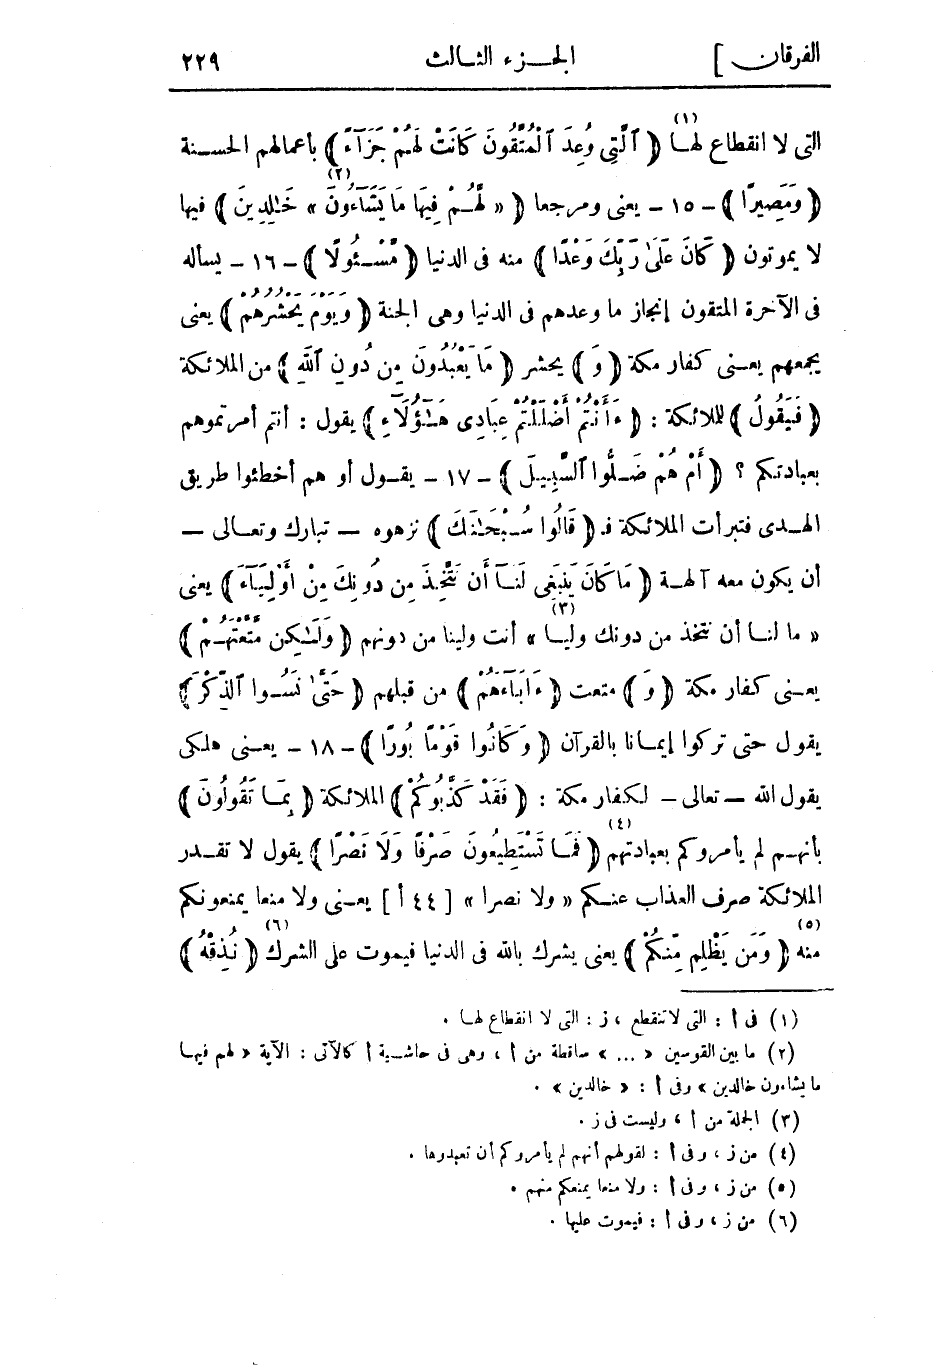 الفرقان ] الجـزء الثـالث ٢٢٩
التى لا انقطاع لهـا (١) ﴿ ٱلَّتِى وُعِدَ ٱلْمُتَّقُونَ كَانَتْ لَهُمْ جَزَآءً ﴾ بأعمالهم الحسـنة
﴿ وَمَصِيرًا ﴾ - ١٥ - يعنى ومرجعا ﴿ « لَّهُمْ فِيهَا مَا يَشَآءُونَ » (٢) خَـٰلِدِينَ ﴾ فيها
لا يموتون ﴿ كَانَ عَلَىٰ رَبِّكَ وَعْدًا ﴾ منه فى الدنيا ﴿ مَّسْـُٔولًا ﴾ - ١٦ - يسأله
فى الآخرة المتقون إنجاز ما وعدهم فى الدنيا وهى الجنة ﴿ وَيَوْمَ يَحْشُرُهُمْ ﴾ يعنى
يجمعهم يعـنى كفار مكة ﴿ وَ ﴾ يحشر ﴿ مَا يَعْبُدُونَ مِن دُونِ ٱللَّهِ ﴾ من الملائكة
﴿ فَيَقُولُ ﴾ للملائكة : ﴿ ءَأَنتُمْ أَضْلَلْتُمْ عِبَادِى هَـٰٓؤُلَآءِ ﴾ يقول : أنتم أمرتموهم
بعبادتكم ؟ ﴿ أَمْ هُمْ ضَـلُّوا ٱلسَّبِيـلَ ﴾ - ١٧ - يقـول أو هم أخطئوا طريق
الهـدى فتبرأت الملائكة فـ ﴿ قَالُوا سُـبْحَـٰنَكَ ﴾ نزهوه — تبارك وتعـالى —
أن يكون معه آلهـة ﴿ مَا كَانَ يَنبَغِى لَنَـآ أَن نَتَّخِذَ مِن دُونِكَ مِنْ أَوْلِيَـآءَ ﴾ يعنى
« ما لنـا أن نتخذ من دونك وليـا » (٣) أنت ولينا من دونهم ﴿ وَلَـٰكِن مَّتَّعْتَهُـمْ ﴾
يعـنى كـفار مكة ﴿ وَ ﴾ متعت ﴿ ءَابَآءَهُمْ ﴾ من قبلهم ﴿ حَتَّىٰ نَسُـوا ٱلذِّكْرَ ﴾
يقول حتى تركوا إيمـانا بالقرآن ﴿ وَكَانُوا قَوْمًا بُورًا ﴾ - ١٨ - يعـنى هلكى
يقول الله — تعالى — لكـفار مكة : ﴿ فَقَدْ كَذَّبُوكُمْ ﴾ الملائكة ﴿ بِمَـا تَقُولُونَ ﴾
بأنهـم لم يأمروكم بعبادتهم (٤) ﴿ فَمَـا تَسْتَطِيعُونَ صَرْفًا وَلَا نَصْرًا ﴾ يقول لا تقـدر
الملائكة صرف العذاب عنـكم « ولا نصرا » [ ٤٤ أ ] يعـنى ولا منعا يمنعونكم
منه (٥) ﴿ وَمَن يَظْلِم مِّنكُمْ ﴾ يعنى يشرك بالله فى الدنيا فيموت على الشرك (٦) ﴿ نُذِقْهُ ﴾
(١) فى أ : التى لا تنقطع ، ز : التى لا انقطاع لهـا .
(٢) ما بين القوسين « ... » ساقطة من أ ، وهى فى حاشـية أ كالآتى : الآية « لهم فيهـا
ما يشاءون خالدين » وفى أ : « خالدين » .
(٣) الجملة من أ ، وليست فى ز .
(٤) من ز ، وفى أ : لقولهم أنهم لم يأمروكم أن تعبدوها .
(٥) من ز ، وفى أ : ولا منعا يمنعكم منهم .
(٦) من ز ، وفى أ : فيموت عليها .